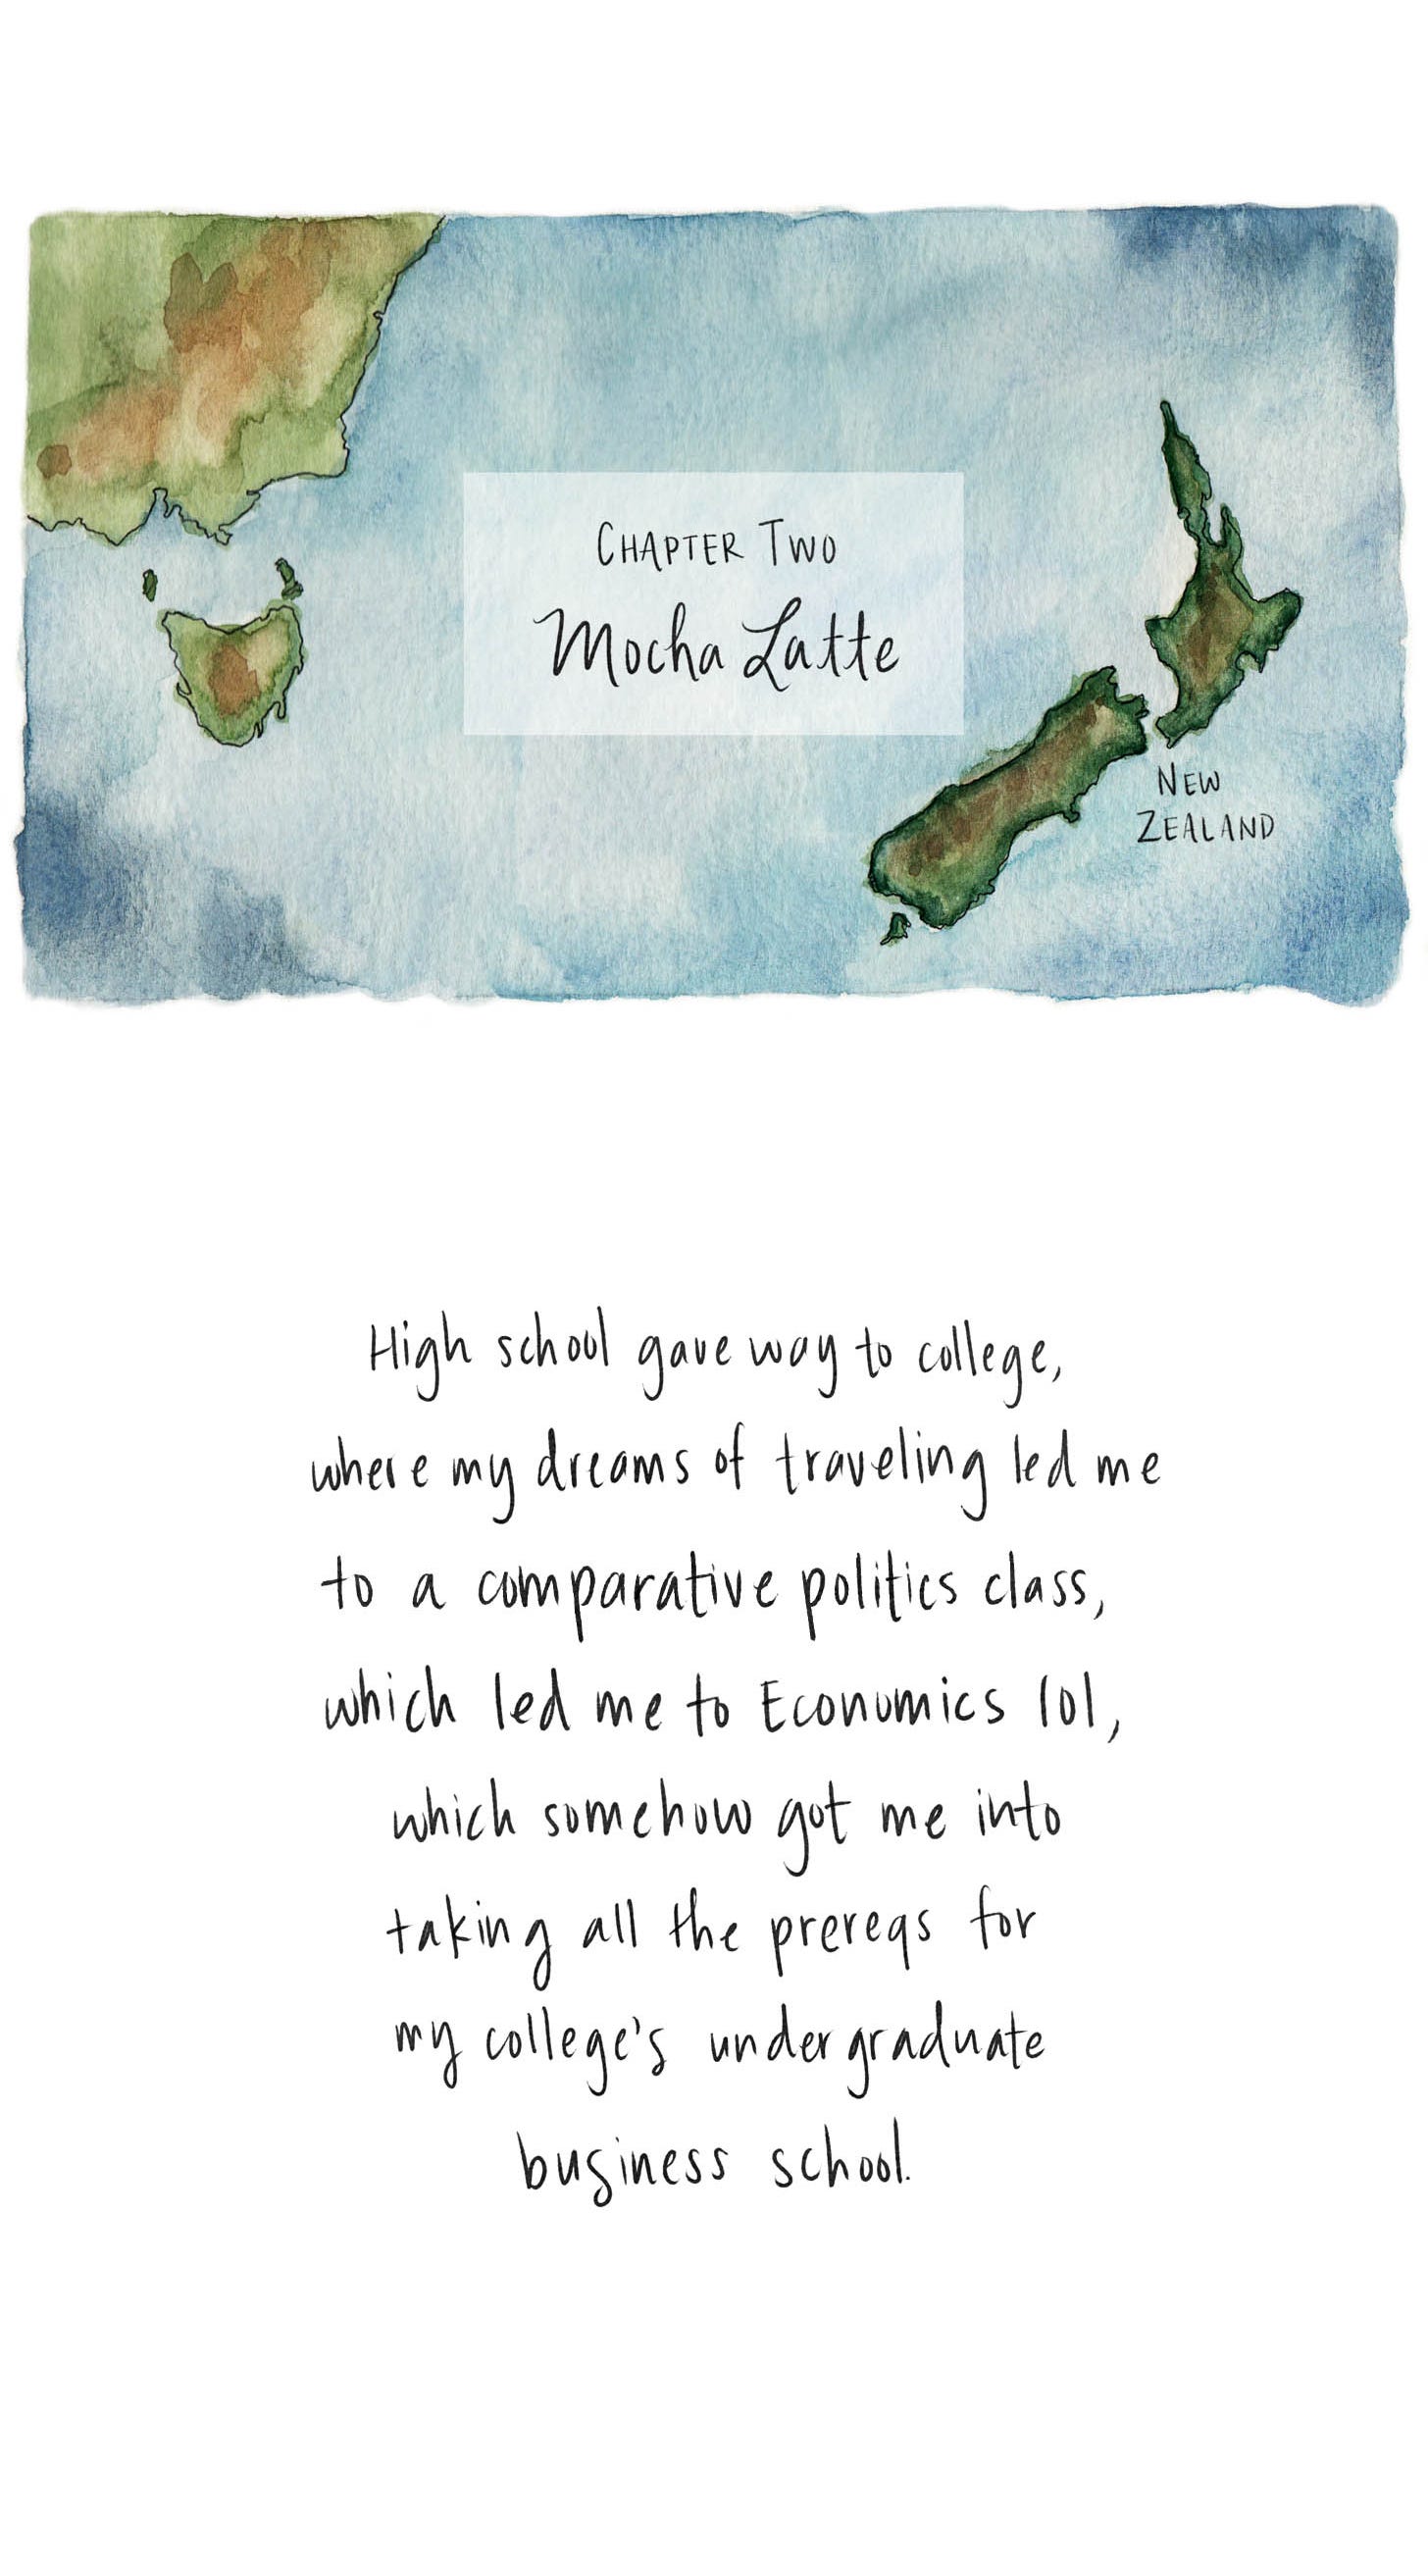 CHAPTER TWO
Mocha Latte
NEW
ZEALAND
High school gave way to college,
where my dreams of traveling led me
to a comparative politics class,
which led me to Economics 101,
which somehow got me into
taking all the prereqs for
my college's undergraduate
business school.